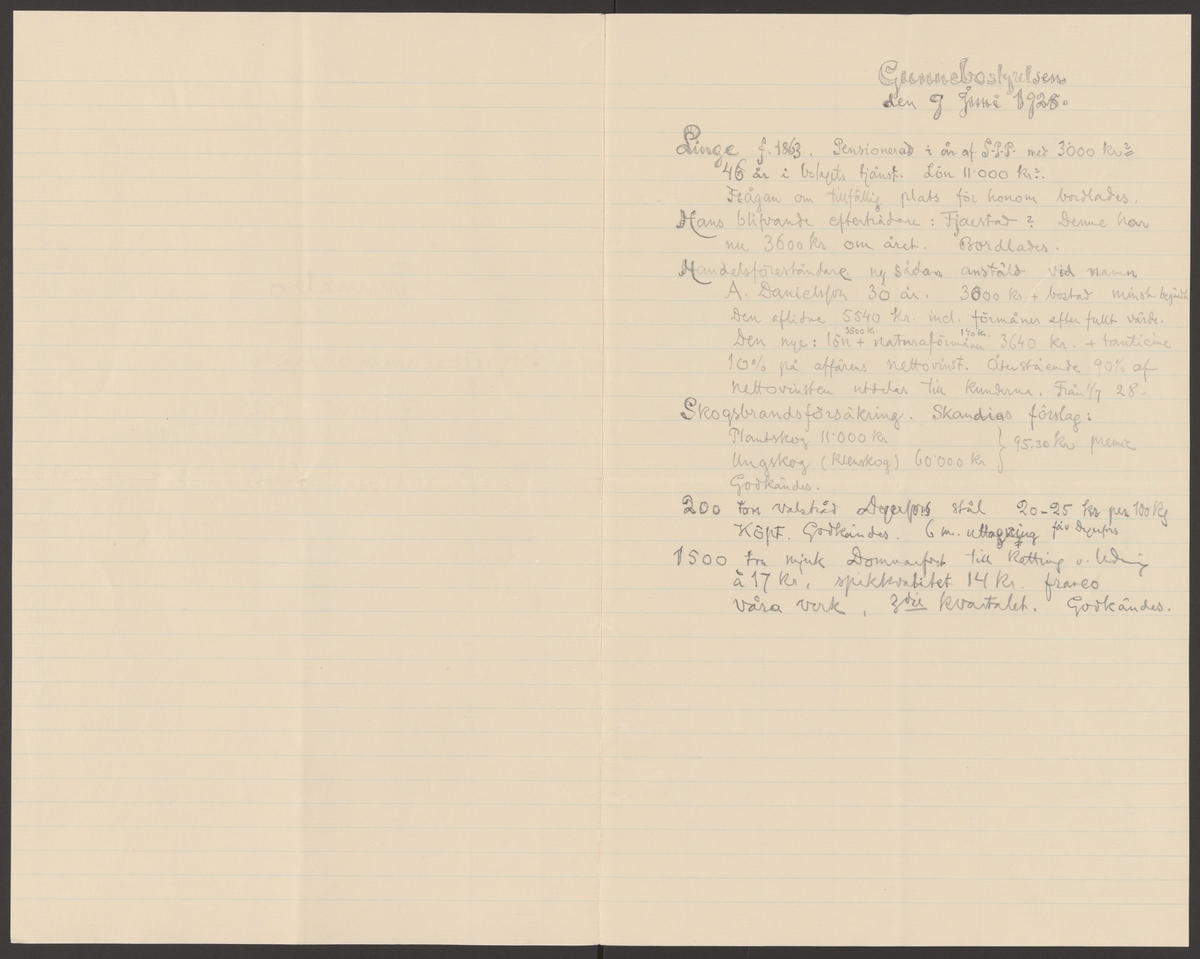 Gunnebostyrelsen
den 9 Juni 1928.
Linge f. 1863. Pensionerad i år af S.P.P. med 3000 kr?
46 år i bolagets tjänst. Lön 11'000 kr?.
Frågan om tillfällig plats för honom bordlades.
Hans blifvande efterträdare: Fjaestad? Denne har
nu 3600 kr om året. Bordlades.
Handelsföreståndare ny sådan anställd vid namn
A. Danielsson 30 år. 3600 kr + bostad minst
Den aflidne 5540 kr. incl. förmåner efter fullt värde.
3500 kr. 140 kr.
Den nye: lön + naturaförmåner 3640 kr. + tantième
10% på affärens nettovinst. Återstående 90% af
nettovinsten utdelas till kunderna. Från 1/7 28.
Skogsbrandsförsäkring. Skandias förslag:
Plantskog 11'000 kr
Ungskog (klenskog) 60'000 kr } 95.30 kr premie
Godkändes.
200 ton valstråd Degerfors stål 20-25 kr per 100 kg
Köpt. Godkändes. 6 m. uttagning från Degerfors
1500 ton mjuk Domnarfvet till Kätting o.
à 17 kr, spikkvalitet 14 kr. franco
våra verk, 3dje kvartalet. Godkändes.